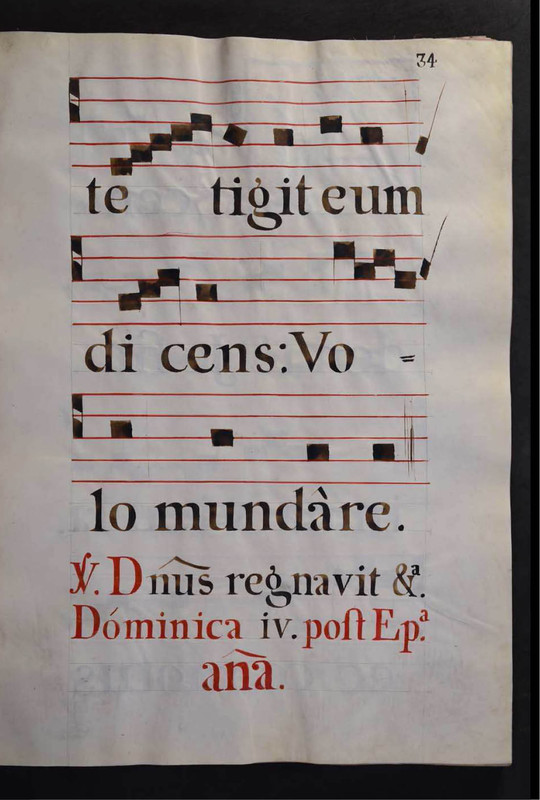 34
te tigit eum
di cens: Vo =
lo mundâre.
℣. Dnūs regnavit &ª.
Dóminica iv. poſt Ep.ª
anā.